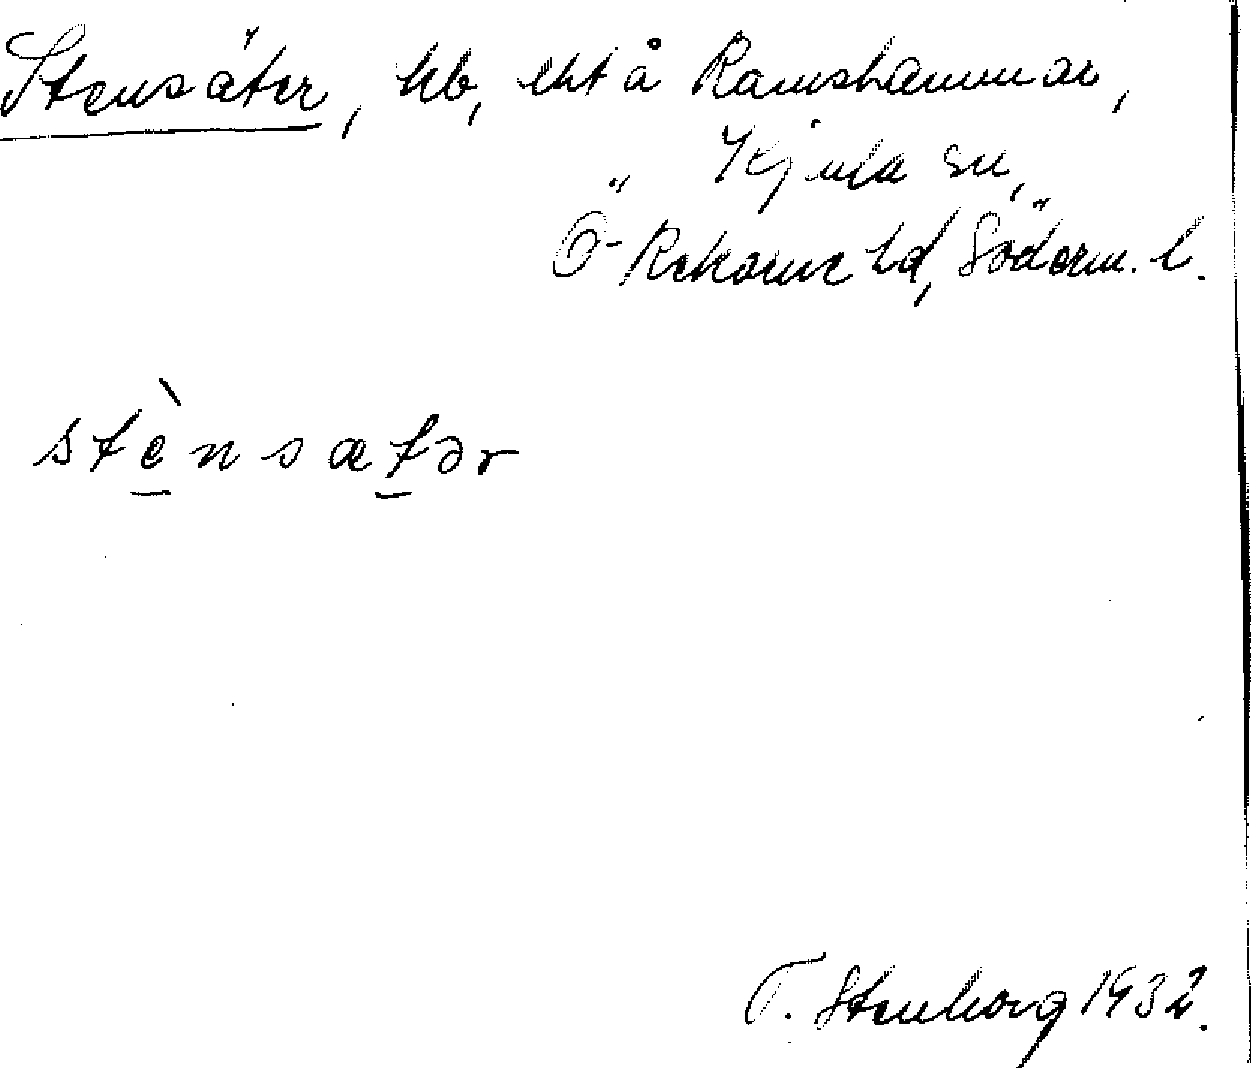 Stensäter, lhb, ekt å Ramshammar,
" Kjula sn,
Ö-Rekarne hd, Söderm. l.
stènsætər
T. Stenborg 1932.